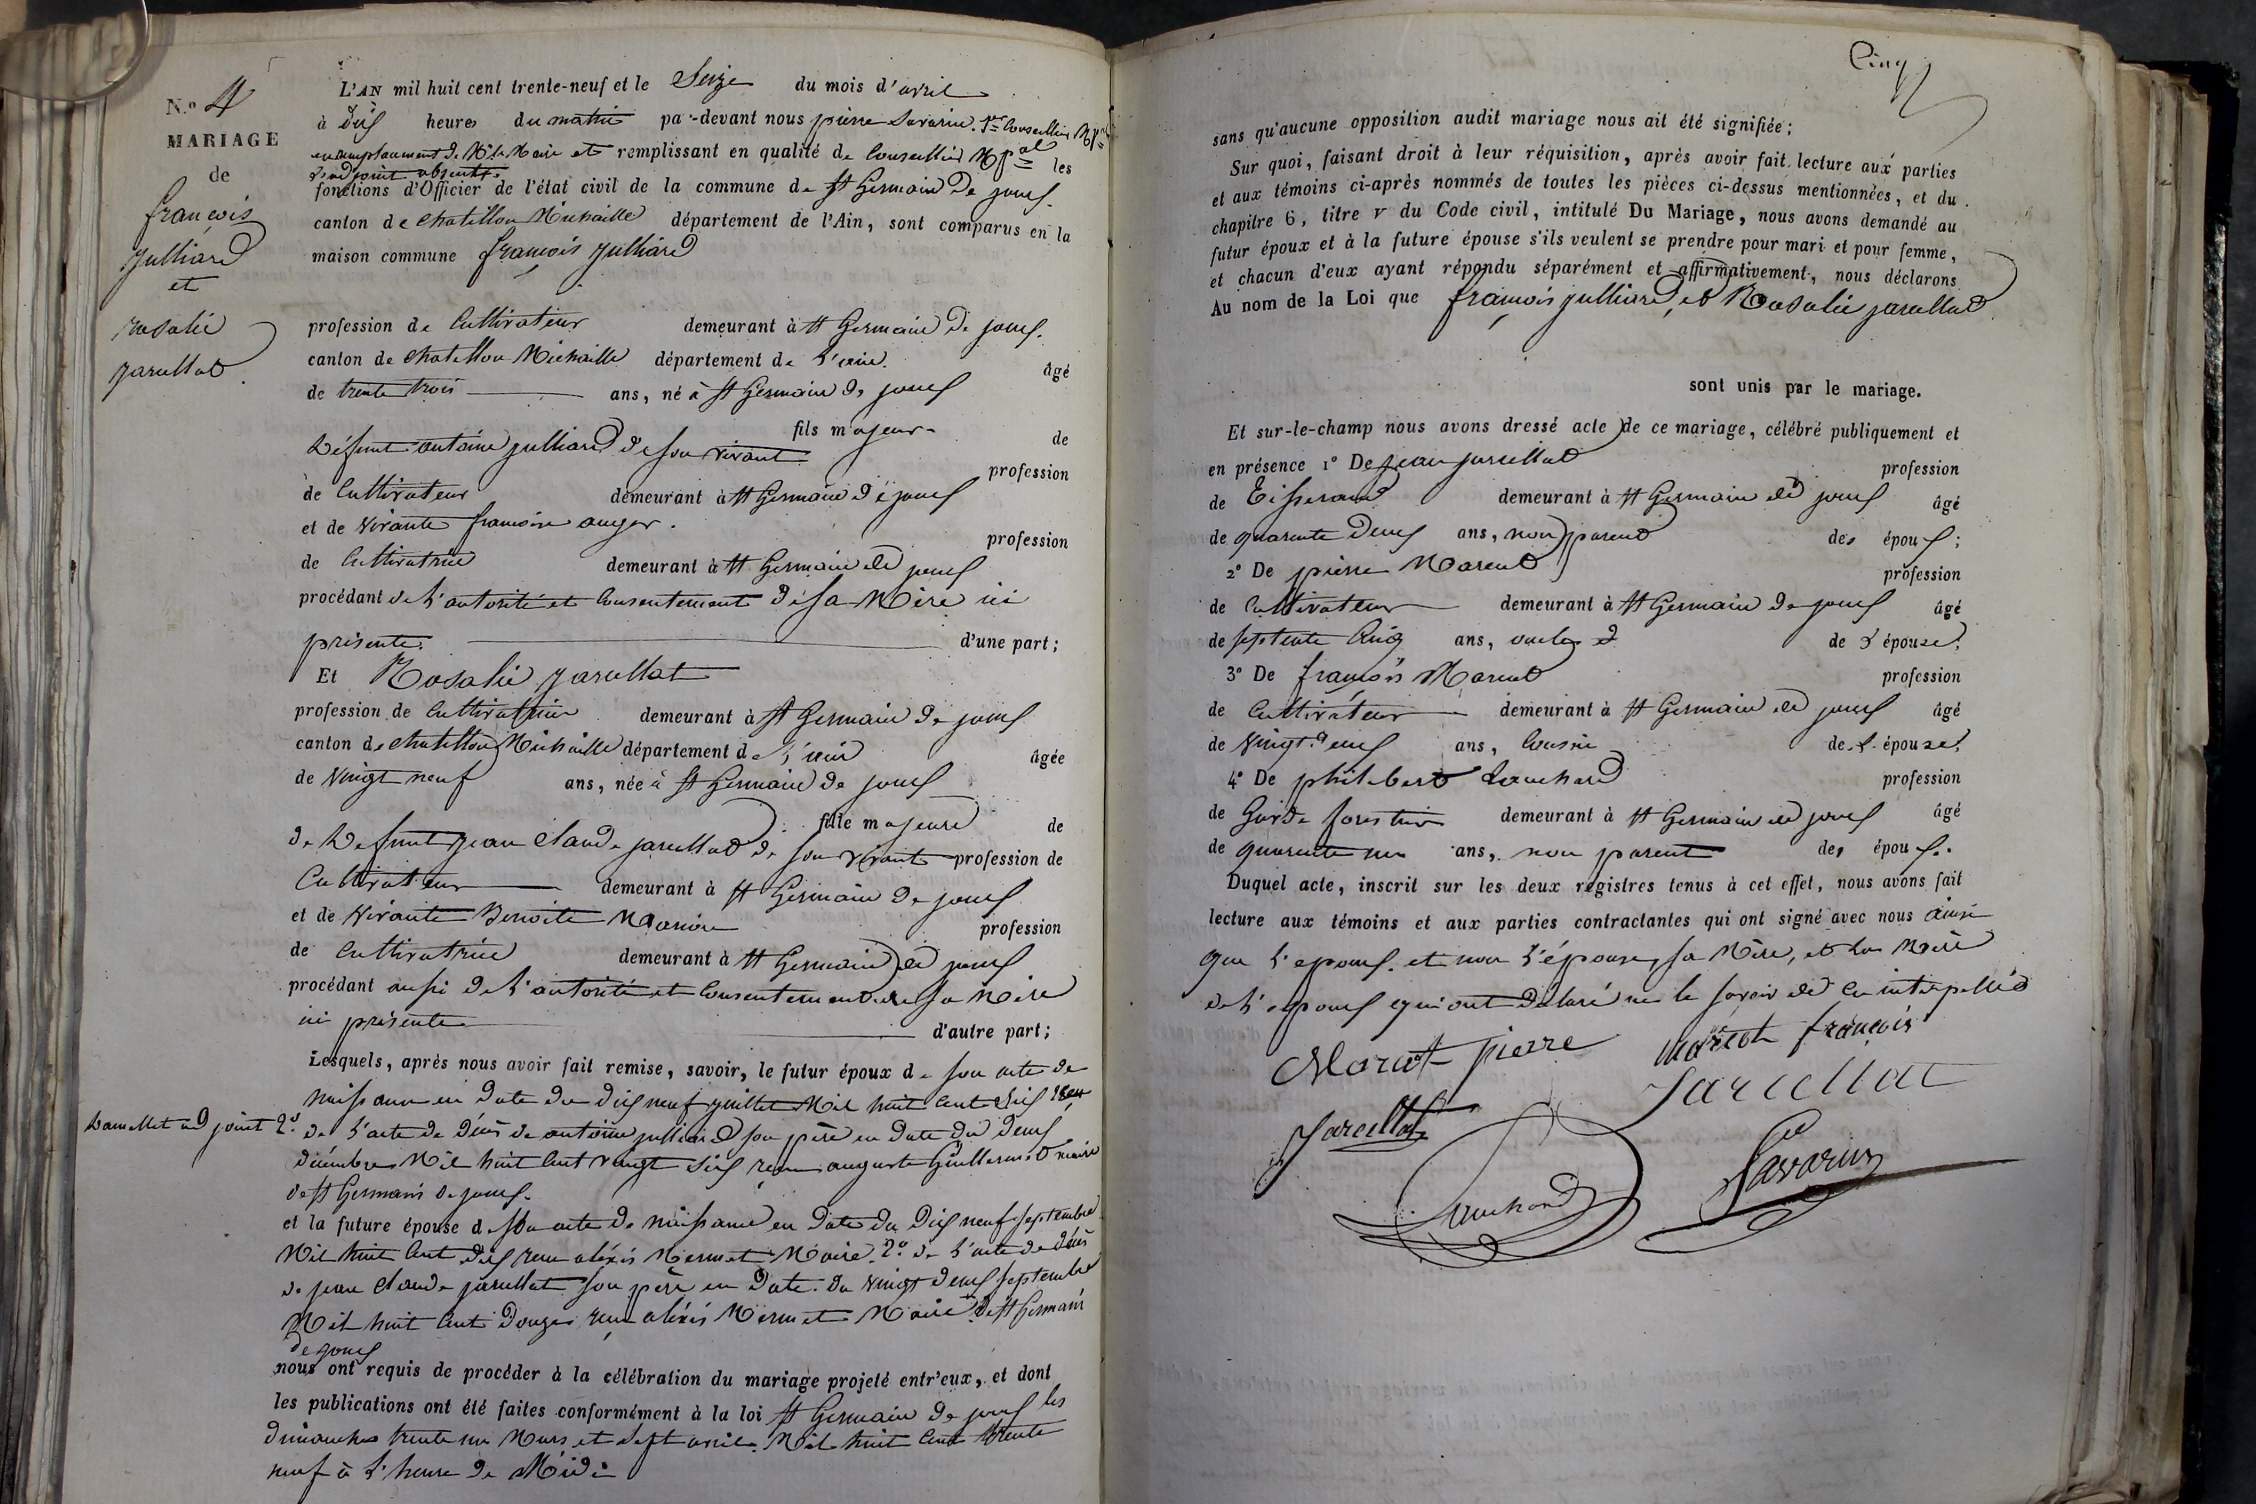 N.o 4
MARIAGE
de
françois
Julliard
et
rosalie
Jarcellat
L'AN mil huit cent trente-neuf et le Seize du mois d'avril
à dix heures du matin pa-devant nous pierre Savarin 1er Conseiller Mpal
en remplacement de Mr le Maire et remplissant en qualité de Conseiller Mpal les
d'adjoint absents
fonctions d'Officier de l'état civil de la commune de St Germain de joux
canton de chatillon Michaille département de l'Ain, sont comparus en la
maison commune françois Julliard
profession de Cultivateur demeurant à St Germain de joux
canton de chatillon Michaille département de l'ain âgé
de trente trois ans, né à St Germain de joux
fils majeur de
Défunt antoine julliard de son vivant profession
de Cultivateur demeurant à St Germain de joux
et de vivante françoise auger
profession
de Cultivatrice demeurant à St Germain de joux
procédant de l'autorité et Consentement de sa Mère ici
présente d'une part;
Et Rosalie Jarcellat
profession de Cultivatrice demeurant à St Germain de joux
canton de chatillon Michaille département de l'ain âgée
de Vingt neuf ans, née à St Germain de joux
fille majeure de
de Defunt jean Claude jarcellat de son vivant profession de
Cultivateur demeurant à St Germain de joux
et de vivante Benoite profession
de Cultivatrice demeurant à St Germain de joux
procédant aussi de l'autorité et Consentement de sa Mère
ici présente d'autre part;
Lesquels, après nous avoir fait remise, savoir, le futur époux de son acte de
naissance en date du dix neuf juillet Mil huit Cent Six reçu
adjoint 2o de l'acte de décès de antoine julliard son père en date du deux
décembre Mil huit Cent vingt six reçu auguste Guillermet maire
de St Germain de joux.
et la future épouse de son acte de naissance en date du dix neuf septembre
Mil huit Cent dix reçu aléxis Mermet Maire 2o de l'acte de décès
de jean Claude jarcellat son père en date du vingt deux septembre
Mil huit Cent Douze reçu aléxis Mermet Maire de St Germain
de joux
nous ont requis de procéder à la célébration du mariage projeté entr'eux, et dont
les publications ont été faites conformément à la loi St Germain de joux les
dimanches trente un Mars et Sept avril Mil huit Cent trente
neuf à l'heure de Midi
Cinq
sans qu'aucune opposition audit mariage nous ait été signifiée;
Sur quoi, faisant droit à leur réquisition, après avoir fait lecture aux parties
et aux témoins ci-après nommés de toutes les pièces ci-dessus mentionnées, et du
chapitre 6, titre v du Code civil, intitulé Du Mariage, nous avons demandé au
futur époux et à la future épouse s'ils veulent se prendre pour mari et pour femme,
et chacun d'eux ayant répondu séparément et affirmativement, nous déclarons
Au nom de la Loi que françois julliard et Rosalie jarcellat
sont unis par le mariage.
Et sur-le-champ nous avons dressé acte de ce mariage, célébré publiquement et
en présence 1o De jean jarcellat profession
de Tisserand demeurant à St Germain de joux âgé
de quarente deux ans, non parent des époux;
2o De pierre Marcut profession
de Cultivateur demeurant à St Germain de joux âgé
de septente Cinq ans, oncle de l'épouse;
3o De françois Marcut profession
de Cultivateur demeurant à St Germain de joux âgé
de Vingt deux ans, Cousin de l'épouse;
4o De philibert Louchard profession
de Garde forestier demeurant à St Germain de joux âgé
de quarente un ans, non parent des époux.
Duquel acte, inscrit sur les deux registres tenus à cet effet, nous avons fait
lecture aux témoins et aux parties contractantes qui ont signé avec nous ainsi
que l'époux et non l'épouse, sa Mère, et la Mère
de l'époux qui ont déclaré ne le savoir de ce interpellé
Marcut pierre marcut françois
Jarcellat
Jarcellat
Louchard Savarin